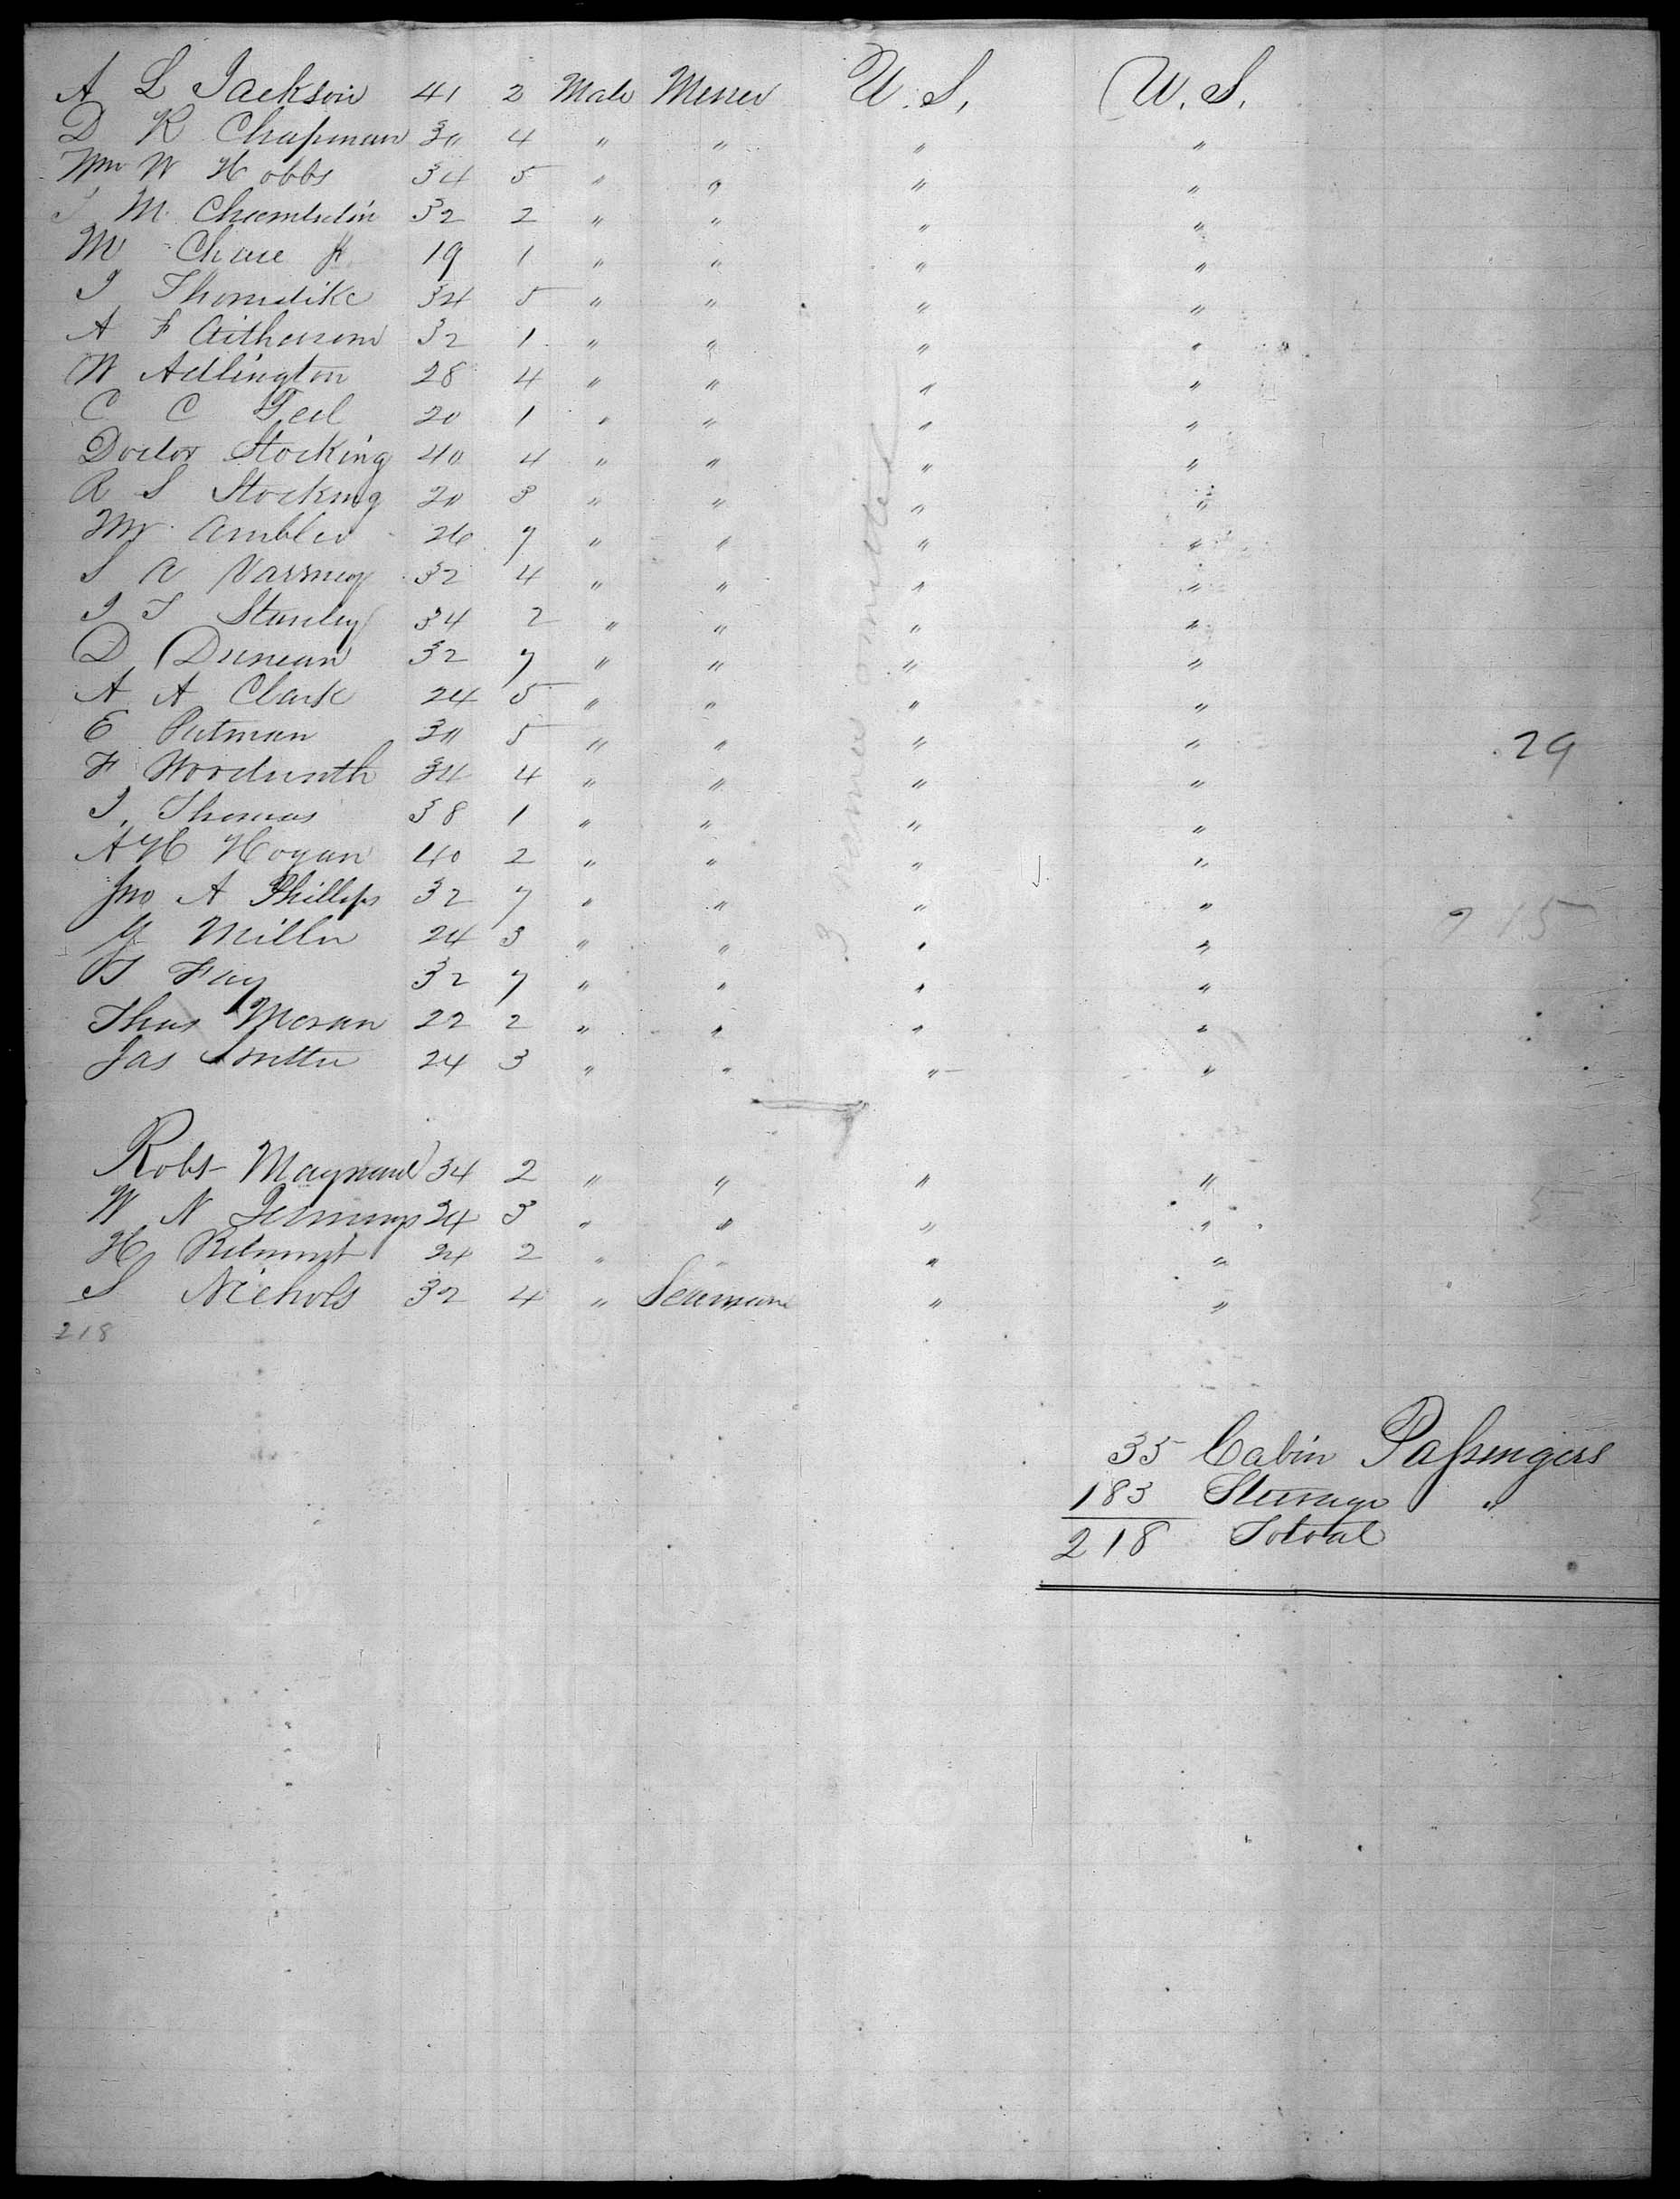 A L Jackson 41 2 Male Miner U. S. U. S.
D K Chapman 30 4 " " " "
Wm W Hobbs 34 5 " " " "
M. Chamberlin 32 2 " " " "
M Chase Jr 19 1 " " " "
J Thorndike 34 5 " " " "
A F 32 1 " " " "
W Adlington 28 4 " " " "
C C Teel 20 1 " " " "
Doctor Stocking 40 4 " " " "
R S Stocking 20 3 " " " "
Mr Ambler 26 7 " " " "
S A Varney 32 4 " " " "
J T Stanley 34 2 " " " "
D Duncan 32 7 " " " "
A A Clark 24 5 " " " "
E Putman 30 5 " " " " 29
F Wordworth 34 4 " " " "
J. Thomas 38 1 " " " "
A H Hogan 40 2 " " " "
Jno A Phillips 32 7 " " " "
Miller 24 3 " " " " 15
T Fay 32 7 " " " "
Thos Moran 22 2 " " " "
Jas Smith 24 3 " " " "
3 names omitted
Robt Maynard 34 2 " " " "
W N Jennings 24 3 " " " " 5
H 24 2 " " " "
S Nichols 32 4 " Seaman " "
218
35 Cabin Passengers
183 Steerage "
218 Total